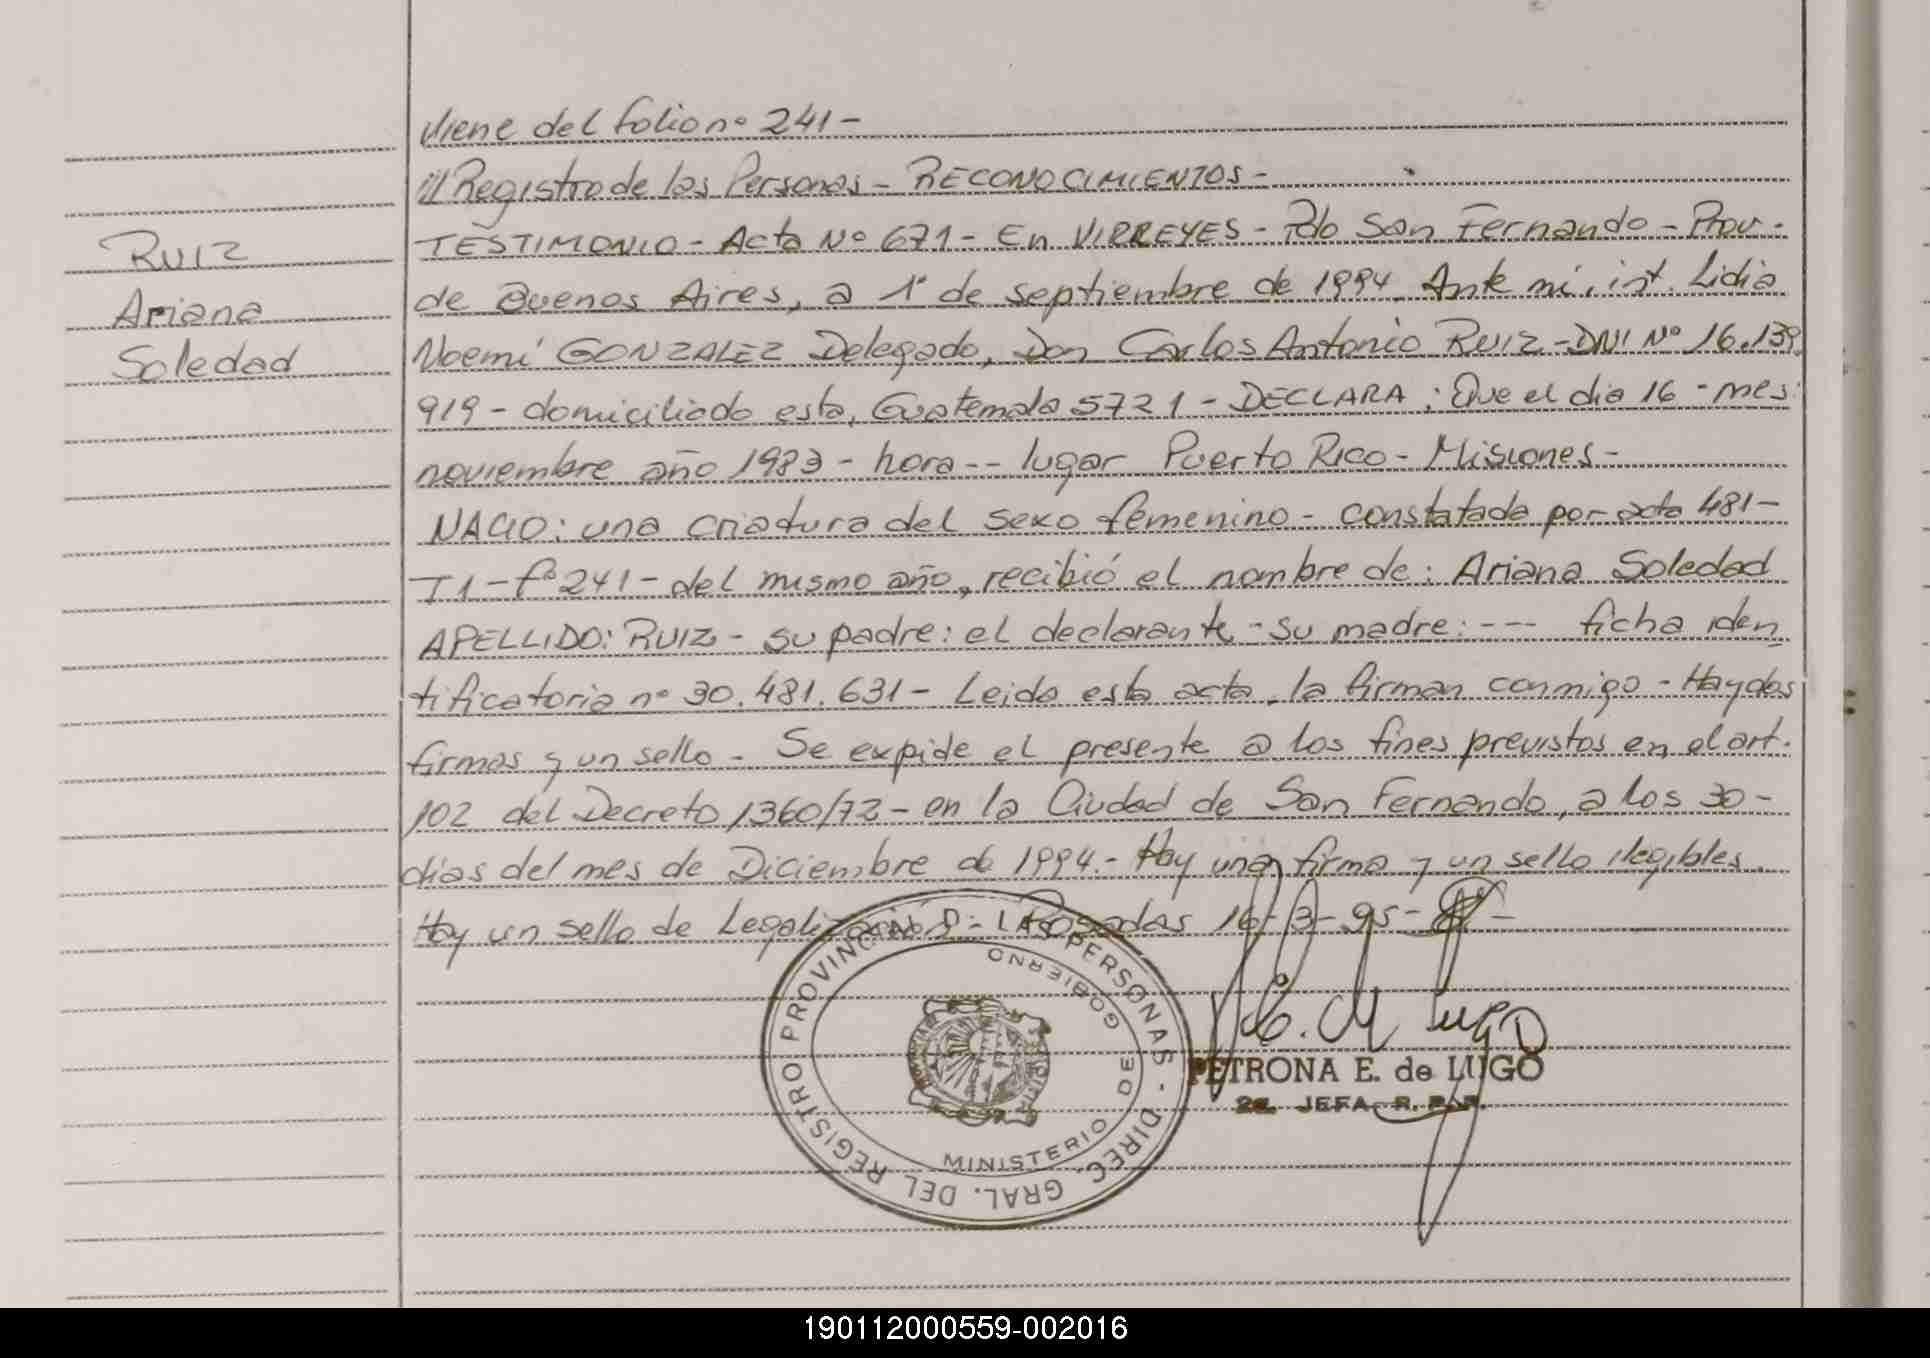 Viene del folio nº 241-
/// Registro de las Personas - RECONOCIMIENTOS -
RUIZ
Ariana
Soledad
TESTIMONIO - Acta Nº 671 - En VIRREYES - Pdo San Fernando - Prov.
de Buenos Aires, a 1º de septiembre de 1994. Ante mi, int. Lidia
Noemí GONZALEZ Delegado, Don Carlos Antonio RUIZ - DNI Nº 16.139.
919 - domiciliado esta, Guatemala 5721 - DECLARA: Que el dia 16 - mes:
noviembre año 1983 - hora -- lugar Puerto Rico - Misiones -
NACIO: una criatura del sexo femenino - constatada por acta 481-
T1 - fº 241 - del mismo año, recibió el nombre de: Ariana Soledad
APELLIDO: RUIZ - su padre: el declarante - su madre: --- ficha iden
tificatoria nº 30.481.631 - Leida esta acta, la firman conmigo - Hay dos
firmas y un sello - Se expide el presente a los fines previstos en el art.
102 del Decreto 1360/72 - en la Ciudad de San Fernando, a los 30-
dias del mes de Diciembre de 1994.- Hay una firma y un sello ilegibles.
Hay un sello de Legalización - Posadas 16-3-95-
DIREC. GRAL. DEL REGISTRO PROVINCIAL D. LAS PERSONAS -
MINISTERIO DE GOBIERNO
de Lugo
PETRONA E. de LUGO
2a. JEFA R. P. P.
190112000559-002016